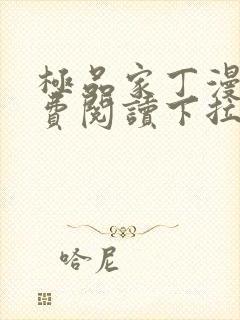 極品家丁漫
費閱讀下拉
哈尼